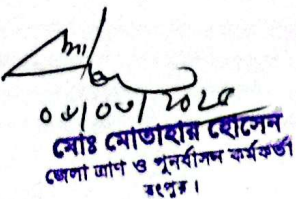 ০৩/০৩/২০২৫
মোঃ মোতাহার হোসেন
জেলা ত্রাণ ও পুনর্বাসন কর্মকর্তা
রংপুর।